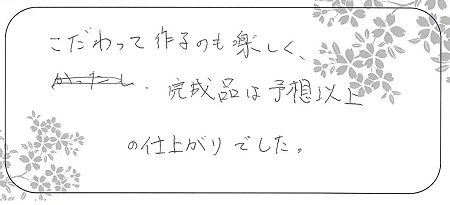 こだわって作るのも楽しく、
完成品は予想以上
の仕上がりでした。